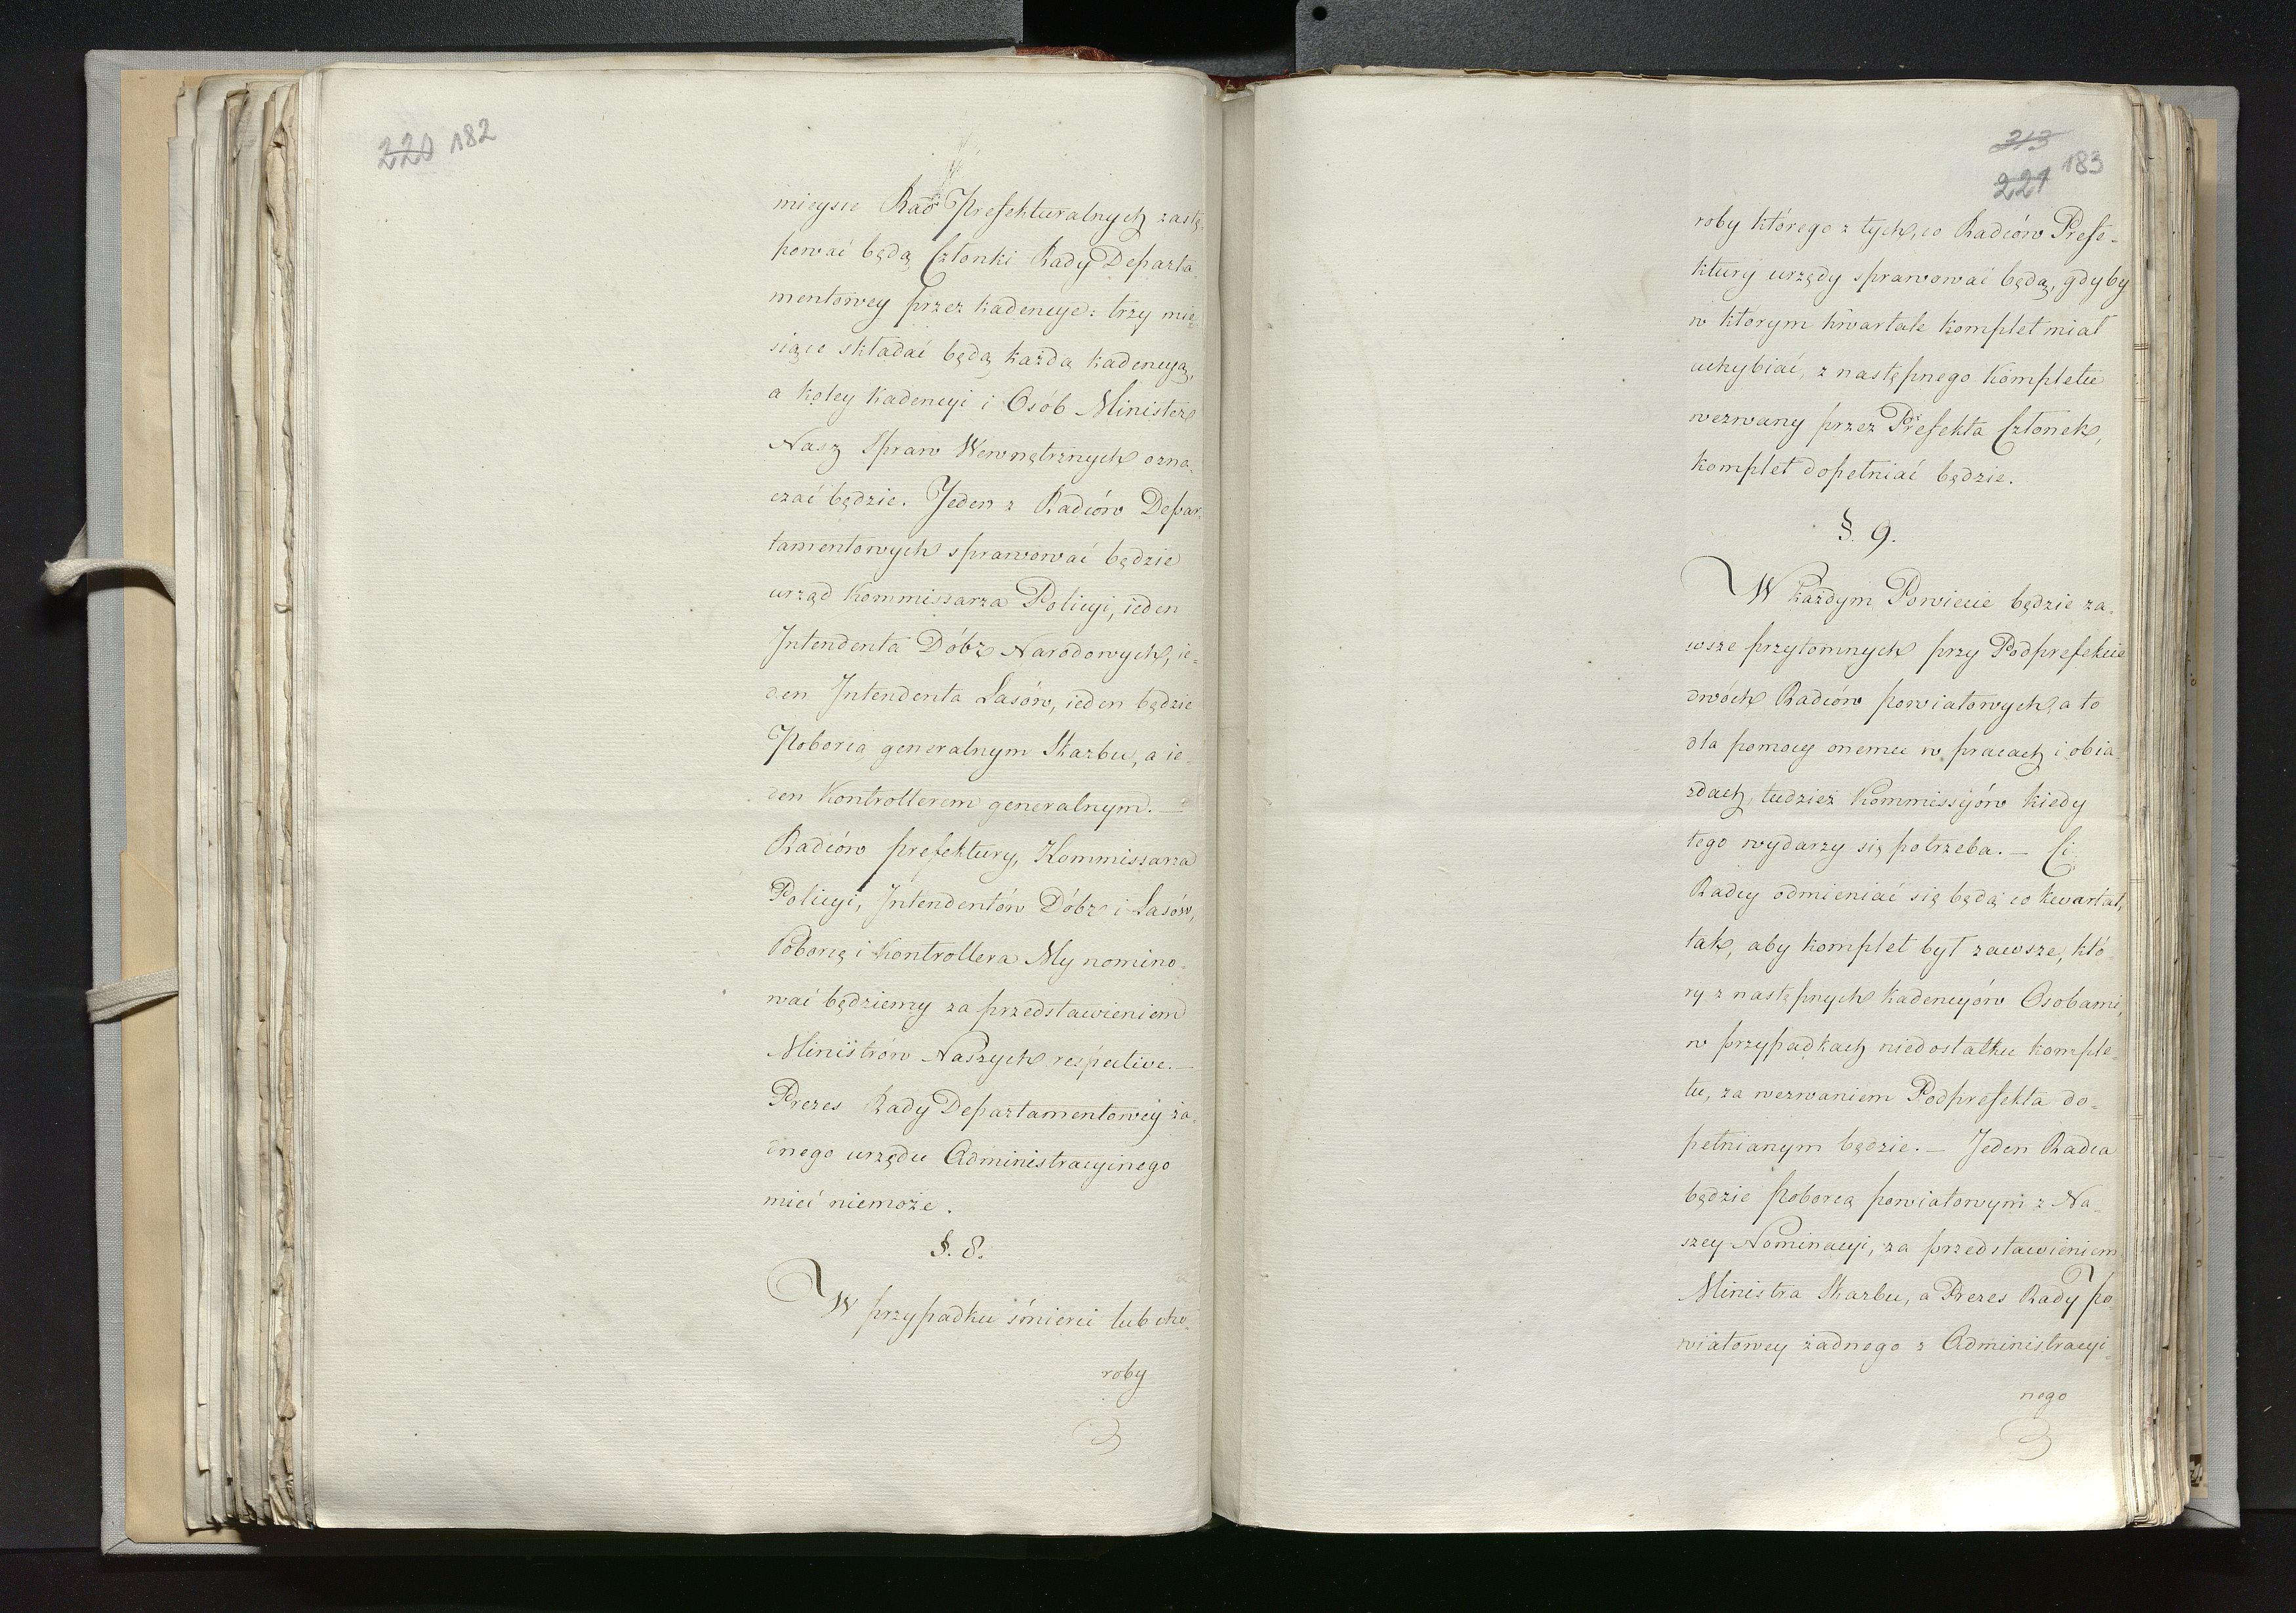 220 182
mieysce Rad Prefekturalnych zastę-
pować będą Członki Rady Departa-
mentowey przez kadencye: trzy mie-
siące składać będą każdą kadencyą,
a koley kadencyi i Osob Minister
Nasz Spraw Wewnętrznych ozna-
czać będzie. Jeden z Radców Depar-
tamentowych sprawować będzie
urząd Kommissarza Policyi, ieden
Intendenta Dóbr Narodowych, ie-
den Intendenta Lasów, ieden będzie
Poborcą generalnym Skarbu, a ie-
den Kontrollerem generalnym. —
Radców prefektury, Kommissarza
Policyi, Intendentów Dóbr i Lasów,
Poborcę i Kontrollera My nomino-
wać będziemy za przedstawieniem
Ministrów Naszych respective. —
Prezes Rady Departamentowey ża-
dnego urzędu Administracyinego
mieć niemoże.
§. 8.
W przypadku śmierci lub cho-
roby
313
221 183
roby którego z tych, co Radców Prefe-
ktury urzędy sprawować będą, gdyby
w ktorym kwartale komplet miał
uchybiać, z następnego Kompletu
wezwany przez Prefekta Członek,
komplet dopełniać będzie.
§. 9.
W każdym Powiecie będzie za-
wsze przytomnych przy Podprefekcie
dwóch Radców powiatowych, a to
dla pomocy onemu w pracach i obia-
zdach, tudzież Kommissyów kiedy
tego wydarzy się potrzeba. — Ci
Radcy odmieniać się będą co kwartał,
tak, aby komplet był zawsze, któ-
ry z następnych kadencyów Osobami,
w przypadkach niedostatku komple-
tu, za wezwaniem Podprefekta do-
pełnianym będzie. — Jeden Radca
będzie poborcą powiatowym z Na-
szey Nominacyi, za przedstawieniem
Ministra Skarbu, a Prezes Rady po-
wiatowey żadnego z Administracyi-
nego